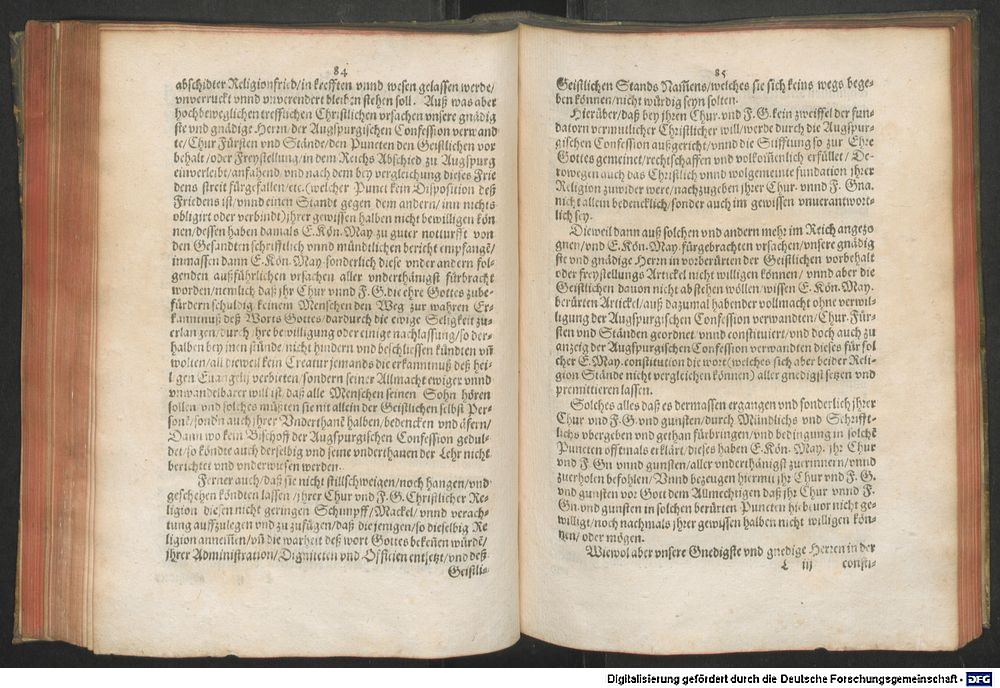 84
abschidter Religionfried/in krefften vnnd wesen gelassen werde/
vnverruckt vnnd vnverendert bleiben stehen soll. Auß was aber
hochbeweglichen trefflichen Christlichen vrsachen vnsere gnädig
ste vnd gnädige Herrn/der Augspurgischen Confession verwand
te/Chur Fürsten vnd Stände/den Puncten den Geistlichen vor
behalt/oder Freystellung/in dem Reichs Abschied zu Augspurg
einverleibt/anfahend/vnd nach dem bey vergleichung dieses Frie
dens streit fürgefallen/etc.(welcher Punct kein Disposition deß
Friedens ist/vnnd einen Standt gegen dem andern/inn nichts
obligirt oder verbindt) ihrer gewissen halben nicht bewilligen kön
nen/dessen haben damals E.Kön.May.zu guter notturfft von
den Gesandten schrifftlich vnnd mündtlichen bericht empfangẽ/
inmassen dann E.Kön.May.sonderlich diese vnder andern fol-
genden außführlichen vrsachen aller vnderthänigst fürbracht
worden/nemlich daß jhr Chur vnnd F.G.die ehre Gottes zube-
fürdern schuldig/keinem Menschen den Weg zur wahren Er-
kanntnuß deß Worts Gottes/dardurch die ewige Seligkeit zu-
erlangen/durch jhre bewilligung oder einige nachlassung/so der-
halben bey jnen stünde nicht hindern vnd beschliessen kündten vñ
wolten/all dieweil kein Creatur jemands die erkanntnuß deß hei-
ligen Euangelij verbieten/sondern seiner Allmacht ewiger vnnd
vnwandelbarer will ist/daß alle Menschen seinen Sohn hören
sollen vnd solches müßten sie nit allein der Geistlichen selbst Per-
sonẽ/sondn auch jhrer Vnderthanẽ halben/bedencken vnd äfern/
Dann wo kein Bischoff der Augspurgischen Confession gedul-
det/so köndte auch derselbig vnd seine vnderthanen der Lehr nicht
berichtet vnd vnderwisen werden.
Ferner auch/daß sie nicht stillschweigen/noch hangen/vnd
geschehen köndten lassen/jhrer Chur vnd F.G.Christlicher Re-
ligion diesen nicht geringen Schimpff/Mackel/vnnd verach-
tung auffzulegen vnd zu zufügen/daß diejenigen/so dieselbig Re
ligion annem̃en/vñ die warheit deß wort Gottes bekeñen würdẽ/
jhrer Administration/Digniteten vnd Officien entsetzt/vnd deß
Geistli-
85
Geistlichen Stands Nam̃ens/welches sie sich keins wegs bege-
ben können/nicht würdig seyn solten.
Hierüber/daß bey jhren Chur. vnd F.G.kein zweiffel der fun-
datorn vermutlicher Christlicher will/werde durch die Augspur-
gischen Confession außgericht/vnnd die Stifftung so zur Ehre
Gottes gemeinet/rechtschaffen vnd volkom̃enlich erfüllet/De-
rowegen auch das Christlich vnnd wolgemeinte fundation jhrer
Religion zuwider were/nachzugeben jhrer Chur. vnnd F. Gna.
nicht allein bedencklich/sonder auch im gewissen vnuerantwort-
lich sey.
Dieweil dann auß solchen vnd andern mehr im Reich angezo
gnen/vnd E.Kön.May.fürgebrachten vrsachen/vnsere gnädig
ste vnd gnädige Herrn in vorberürten der Geistlichen vorbehalt
oder freystellungs Artickel nicht willigen können/vnnd aber die
Geistlichen dauon nicht abstehen wöllen/wissen E.Kön.May.
berürten Artickel/auß dazumal habender vollmacht ohne verwil-
ligung der Augspurgischen Confession verwandten/Chur.Für-
sten vnd Ständen geordnet vnnd constituirt/vnd doch auch zu
anzeig der Augspurgischen Confession verwandten dieses für sol
cher E.May.constitution die wort(welches sich aber beider Reli-
gion Stände nicht vergleichen können) aller gnedigst setzen vnd
premittieren lassen.
Solches alles daß es dermassen ergangen vnd sonderlich jhrer
Chur vnd F.G vnd gunsten/durch Mündlichs vnd Schrifft-
lichs vbergeben vnd gethan fürbringen/vnd bedingung in solchẽ
Puncten offtmals erklärt/dieses haben E.Kön. May. jhr Chur
vnnd F.Gn vnd gunsten/aller vnderthänigst zuerinnern/vnnd
zuerholen befohlen/Vnnd bezeugen hiermit jhr Chur vnd F. G.
vnd gunsten vor Gott dem Allmechtigen daß jhr Chur vnnd F.
Gn.vnd gunsten in solchen berürten Puncten hiebeuor nicht ge-
williget/noch nachmals jhrer gewissen halben nicht willigen kön-
nen/oder mögen.
Wiewol aber vnsere Gnedigste vnd gnedige Herren in der
L iij consti-
Digitalisierung gefördert durch die Deutsche Forschungsgemeinschaft - DFG